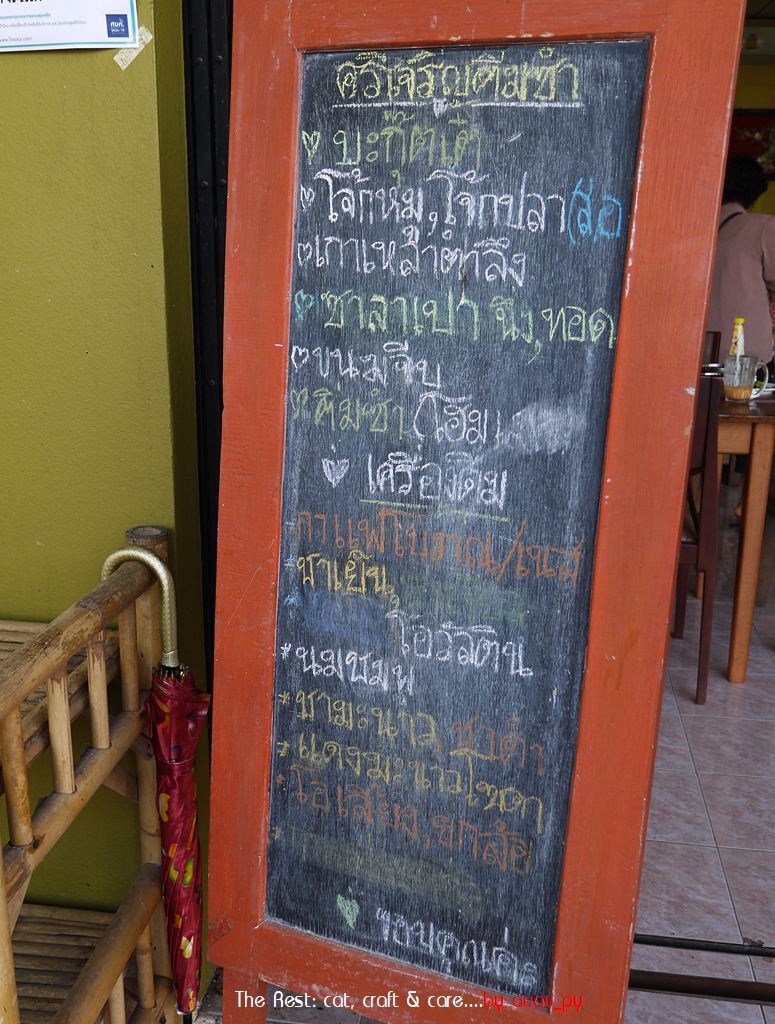 ศรีเจริญติ่มซำ
บะกุ๊ตเต๋
โจ๊กหมู, โจ๊กปลา(ส,อ
เกาเหลาตำลึง
ซาลาเปา นึ่ง,ทอด
ขนมจีบ
ติ่มซำ
เครื่องดื่ม
-กาแฟโบราณ/เนส
-ชาเย็น,
โอวัลติน
*นมชมพู
*ชามะนาว ชาดำ
*แดงมะนาวโซดา
โอเลี้ยง,ยกล้อ
ขอบคุณค่ะ
The Rest: cat, craft & care....by auay_py